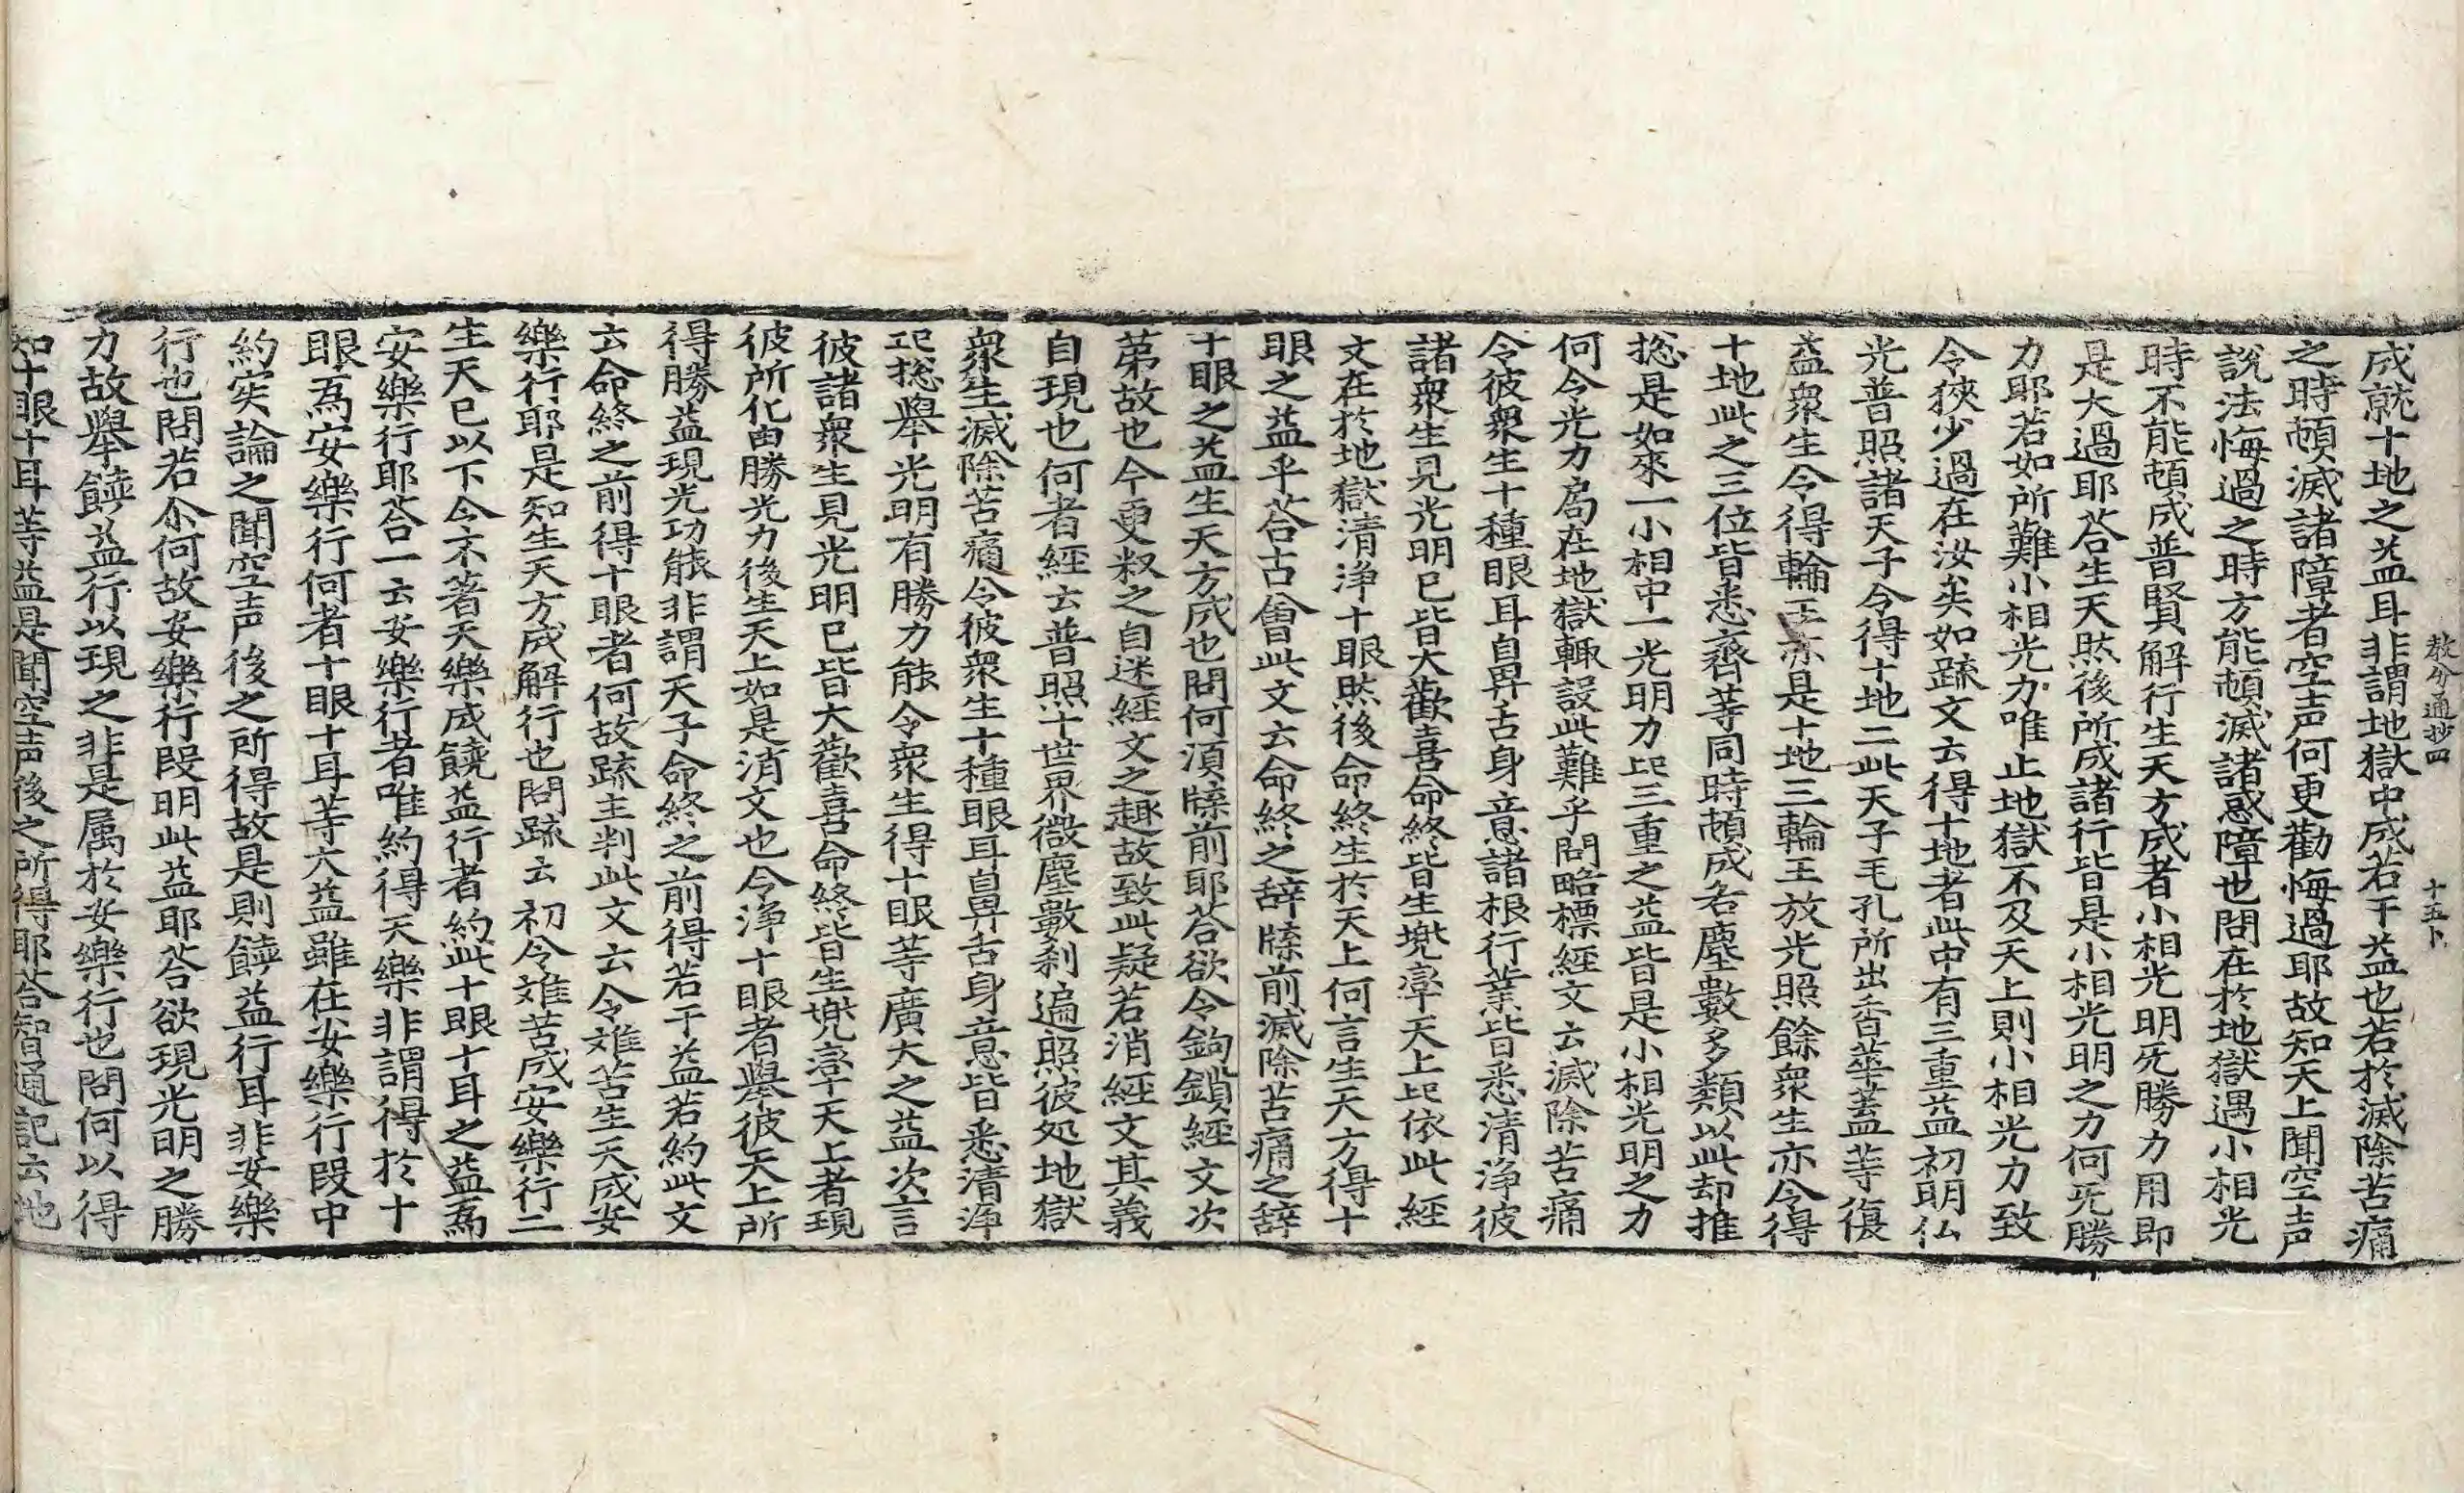 教分通抄四　十五卜
成就十地之益耳非謂地獄中成若干益也若於滅除苦痛
之時頓滅諸障者空声何更勸悔過耶故知天上聞空声
說法悔過之時方能頓滅諸惑障也問在於地獄遇小相光
時不能頓成普賢解行生天方成者小相光明旡勝力用即
是大過耶荅生天然後所成諸行皆是小相光明之力何旡勝
力耶若如所難小相光力唯止地獄不及天上則小相光力致
令狹少過在汝矣如䟽文云得十地者此中有三重益初明仏
光普照諸天子令得十地二此天子毛孔所出香華蓋等復
益衆生令得輪王亦是十地三輪王放光照餘衆生亦令得
十地此之三位皆悉齊等同時頓成各塵數多類以此却推
捴是如來一小相中一光明力此三重之益皆是小相光明之力
何令光力局在地獄輙設此難乎問略標經文云滅除苦痛
令彼衆生十種眼耳自鼻舌身意諸根行業皆悉清淨彼
諸衆生見光明已皆大歡喜命終皆生兠率天上此依此經
文在於地獄清淨十眼然後命終生於天上何言生天方得十
眼之益乎荅古會此文云命終之辞牒前滅除苦痛之辞
十眼之益生天方成也問何湏牒前耶荅欲令鉤鎖經文次
苐故也今更釈之自迷經文之趣故致此疑若消經文其義
自現也何者經云普照十世界微塵數刹遍照彼処地獄
衆生滅除苦痛令彼衆生十種眼耳自鼻舌身意皆悉清淨
此捴舉光明有勝力能令衆生得十眼等廣大之益次言
彼諸衆生見光明已皆大歡喜命終皆生兠率天上者現
彼所化由勝光力後生天上如是消文也令淨十眼者舉彼天上所
得勝益現光功能非謂天子命終之前得若干益若約此文
云命終之前得十眼者何故䟽主判此文云令難苦生天成安
樂行耶是知生天方成解行也問䟽云初令難苦成安樂行二
生天已以下令不著天樂成饒益行者約此十眼十耳之益為
安樂行耶荅一云安樂行者唯約得天樂非謂得於十
眼為安樂行何者十眼十耳等六益雖在安樂行段中
約实論之聞空声後之所得故是則饒益行耳非安樂
行也問若尒何故安樂行段明此益耶荅欲現光明之勝
力故舉饒益行以現之非是属於安樂行也問何以得
知十眼十耳等益是聞空声後之所得耶荅智通記云地